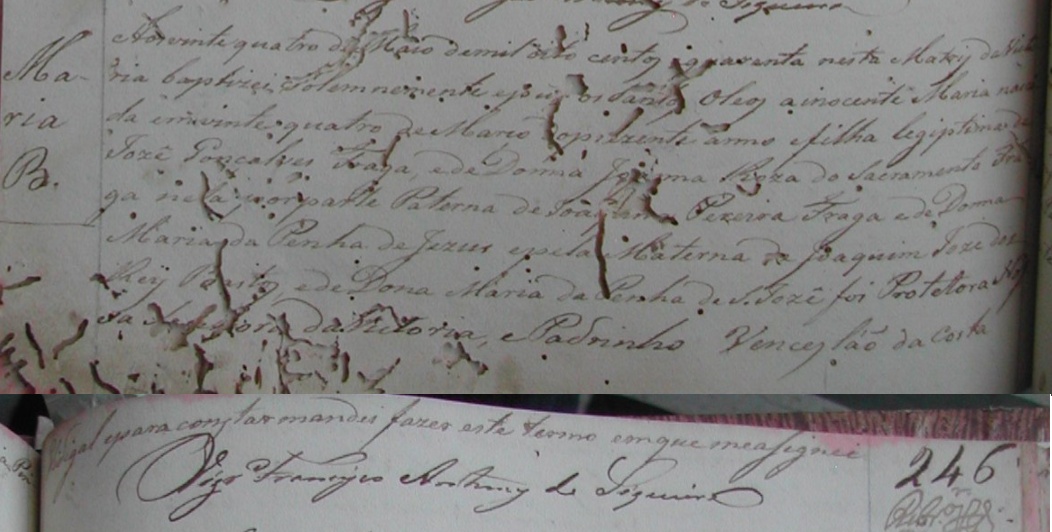 Ma-
ria
B.
Aos vinte quatro de Maio de mil oito centos quarenta nesta Matriz da Victo
ria baptizei solemnemente e puz os Santos Oleos a inocente Maria nasci
da em vinte quatro de Março do prezente anno e filha legiptima de
Jozé Gonçalves Fraga, e de Donna Joanna Roza do Sacramento Fra
ga neta por parte Paterna de João Pereira Fraga e de Donna
Maria da Penha de Jezus e pela Materna de Joaquim Jozé dos
Reys Basto, e de Dona Maria da Penha de S. Jozé foi Protetora Nos
sa Senhora da Vitoria, e Padrinho Venceslão da Costa
e para constar mandei fazer este termo em que me assignei
Vigro Francisco Antunes de Siqueira
246